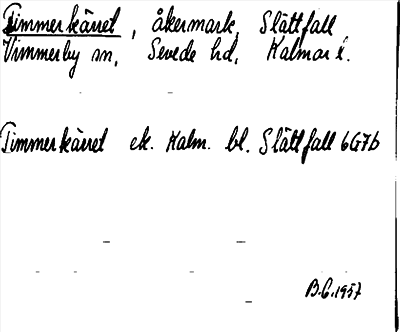 Timmerkärret, åkermark, Slättfall
Vimmerby sn, Sevede hd, Kalmar l.
Timmerkärret ek. Kalm. bl. Slättfall 6G7b
B.C. 1957